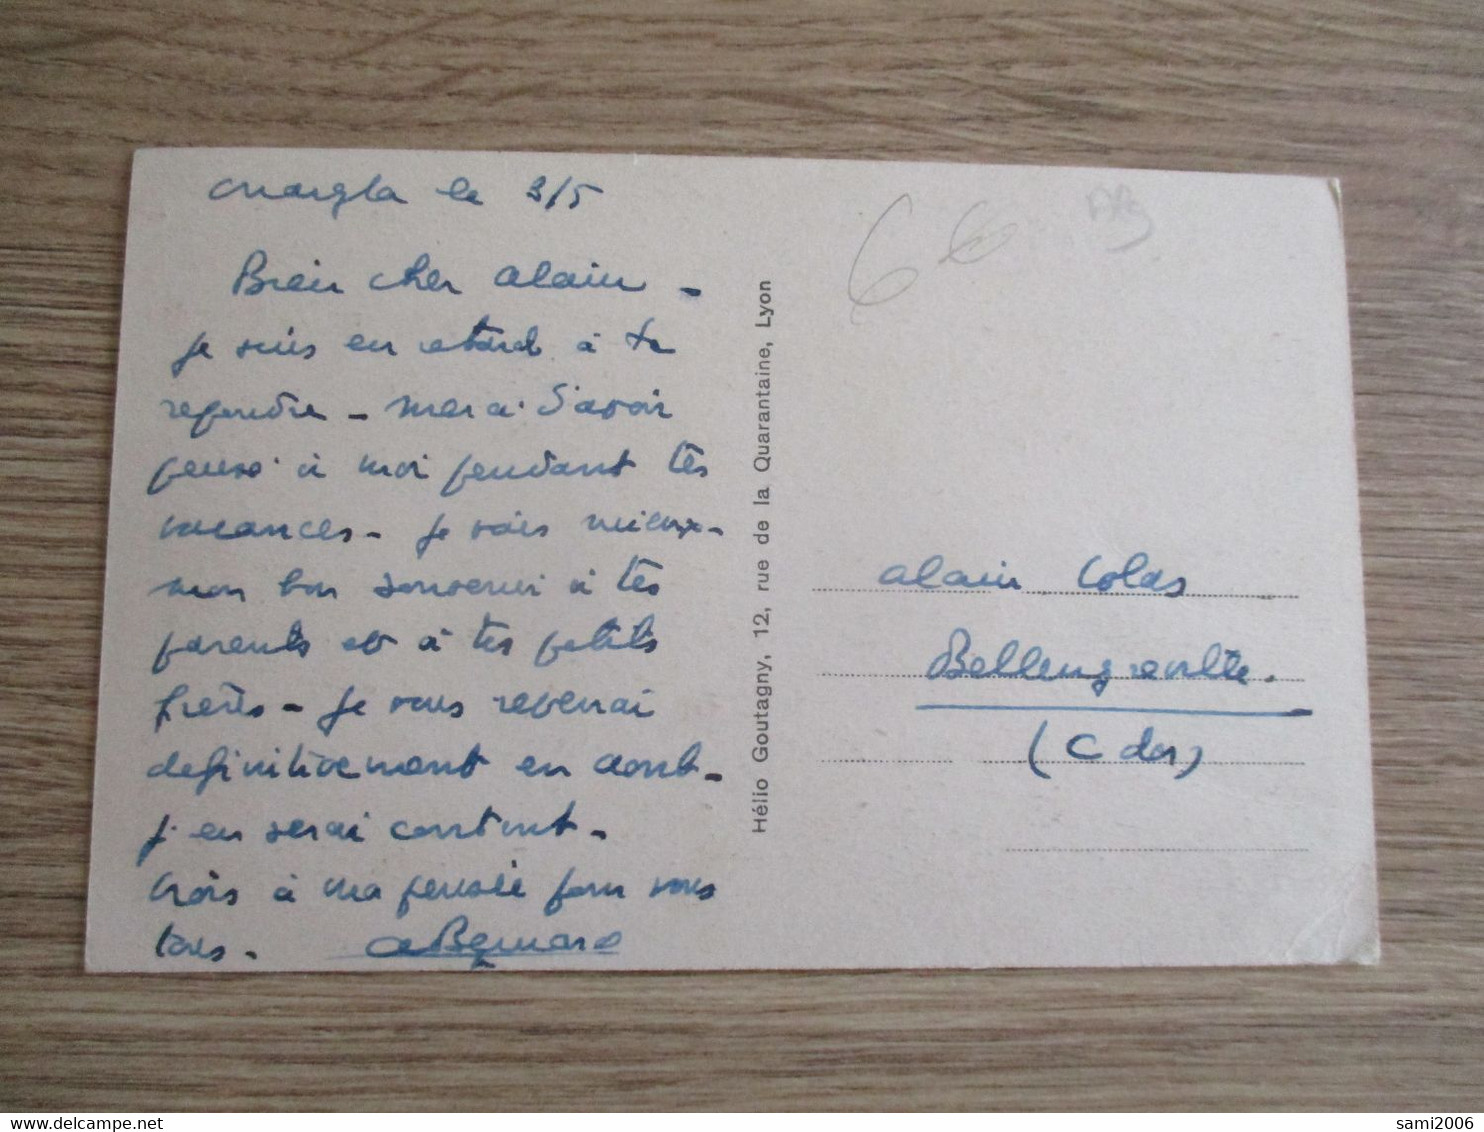 Ouargla le 3/5
Bien cher Alain -
je suis en retard à te
repondre - merci d'avoir
pensé à moi pendant tes
vacances - je vais mieux -
mon bon souvenir à tes
parents et à tes petits
frères - je vous reverrai
definitivement en aout -
j'en serai content -
crois à ma pensée pour vous
tous -
Hélio Goutagny, 12, rue de la Quarantaine, Lyon
66
Alain Colas
Bellengreville.
(C dos)
sami2006